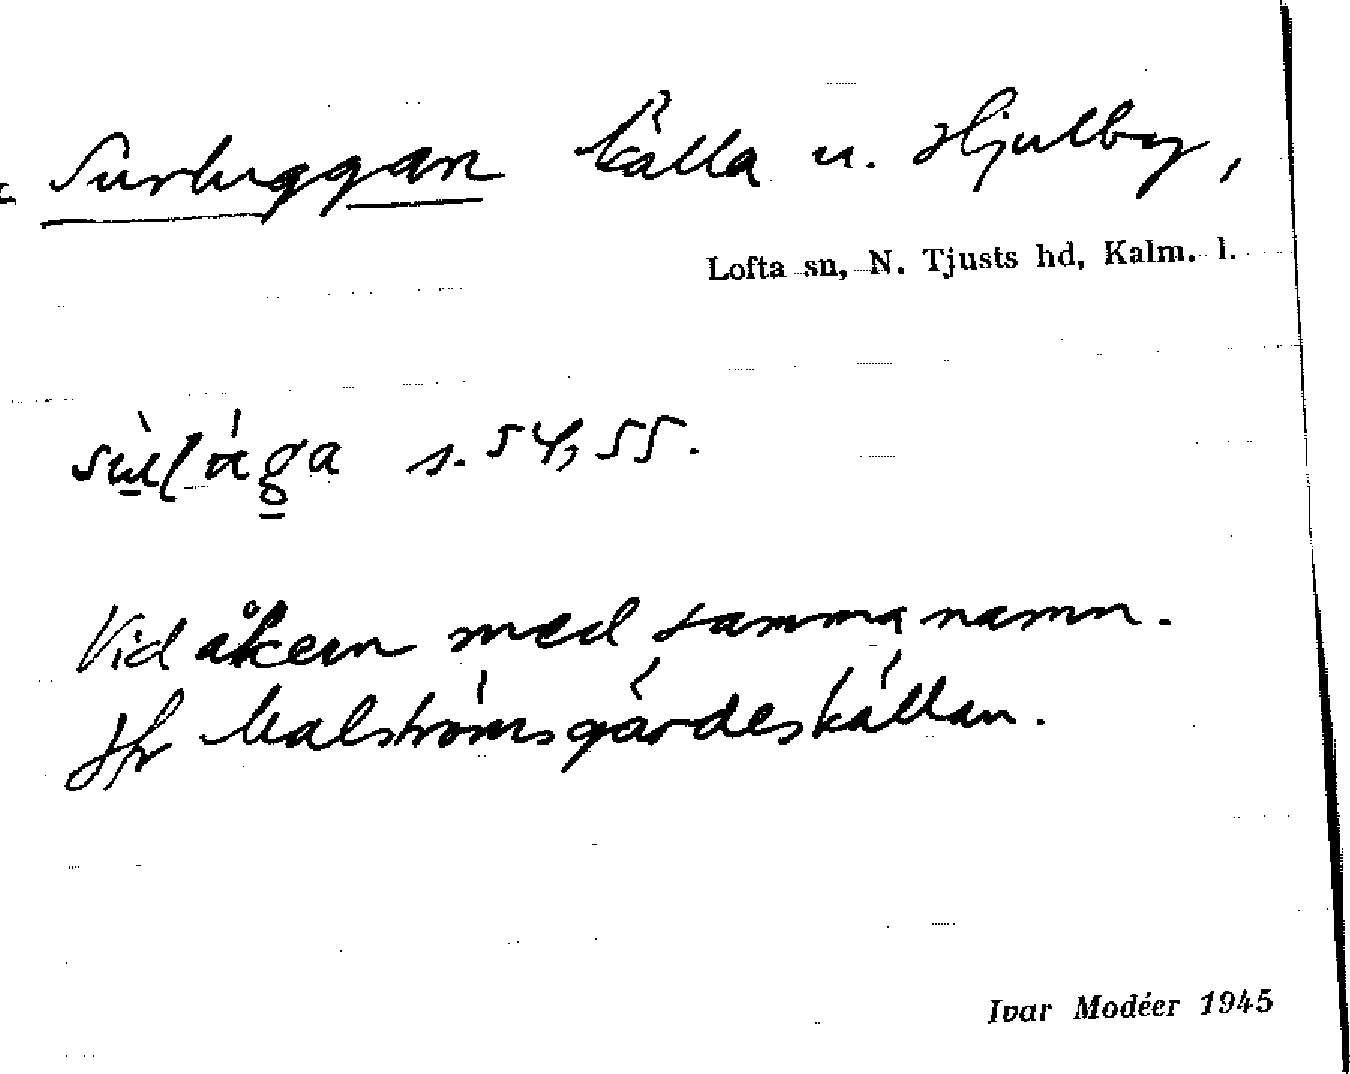 Surluggan källa u. Hjulby,
Lofta sn, N. Tjusts hd, Kalm. l.
s. 54, 55.
Vid åkern med samma namn.
Jfr Malströmsgärdeskällan.
Ivar Modéer 1945